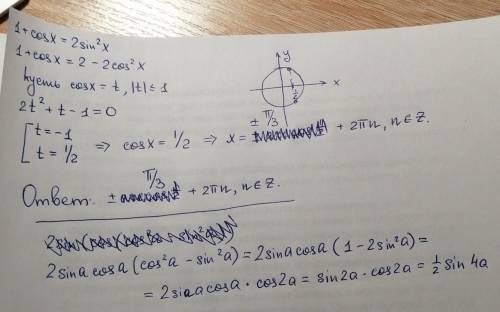 1+cosx = 2sin²x
1+cosx = 2 - 2cos²x
Пусть cosx = t, |t| ≤ 1
2t² + t - 1 = 0
[ t = -1
t = 1/2 ⇒ cosx = 1/2 ⇒ x = ± π/3 + 2πn, n ∈ Z.
y
x
1/2
Ответ: ± π/3 + 2πn, n ∈ Z.
2sina cosa (cos²a - sin²a) = 2sina cosa (1 - 2sin²a) =
= 2sina cosa · cos2a = sin2a · cos2a = 1/2 sin 4a